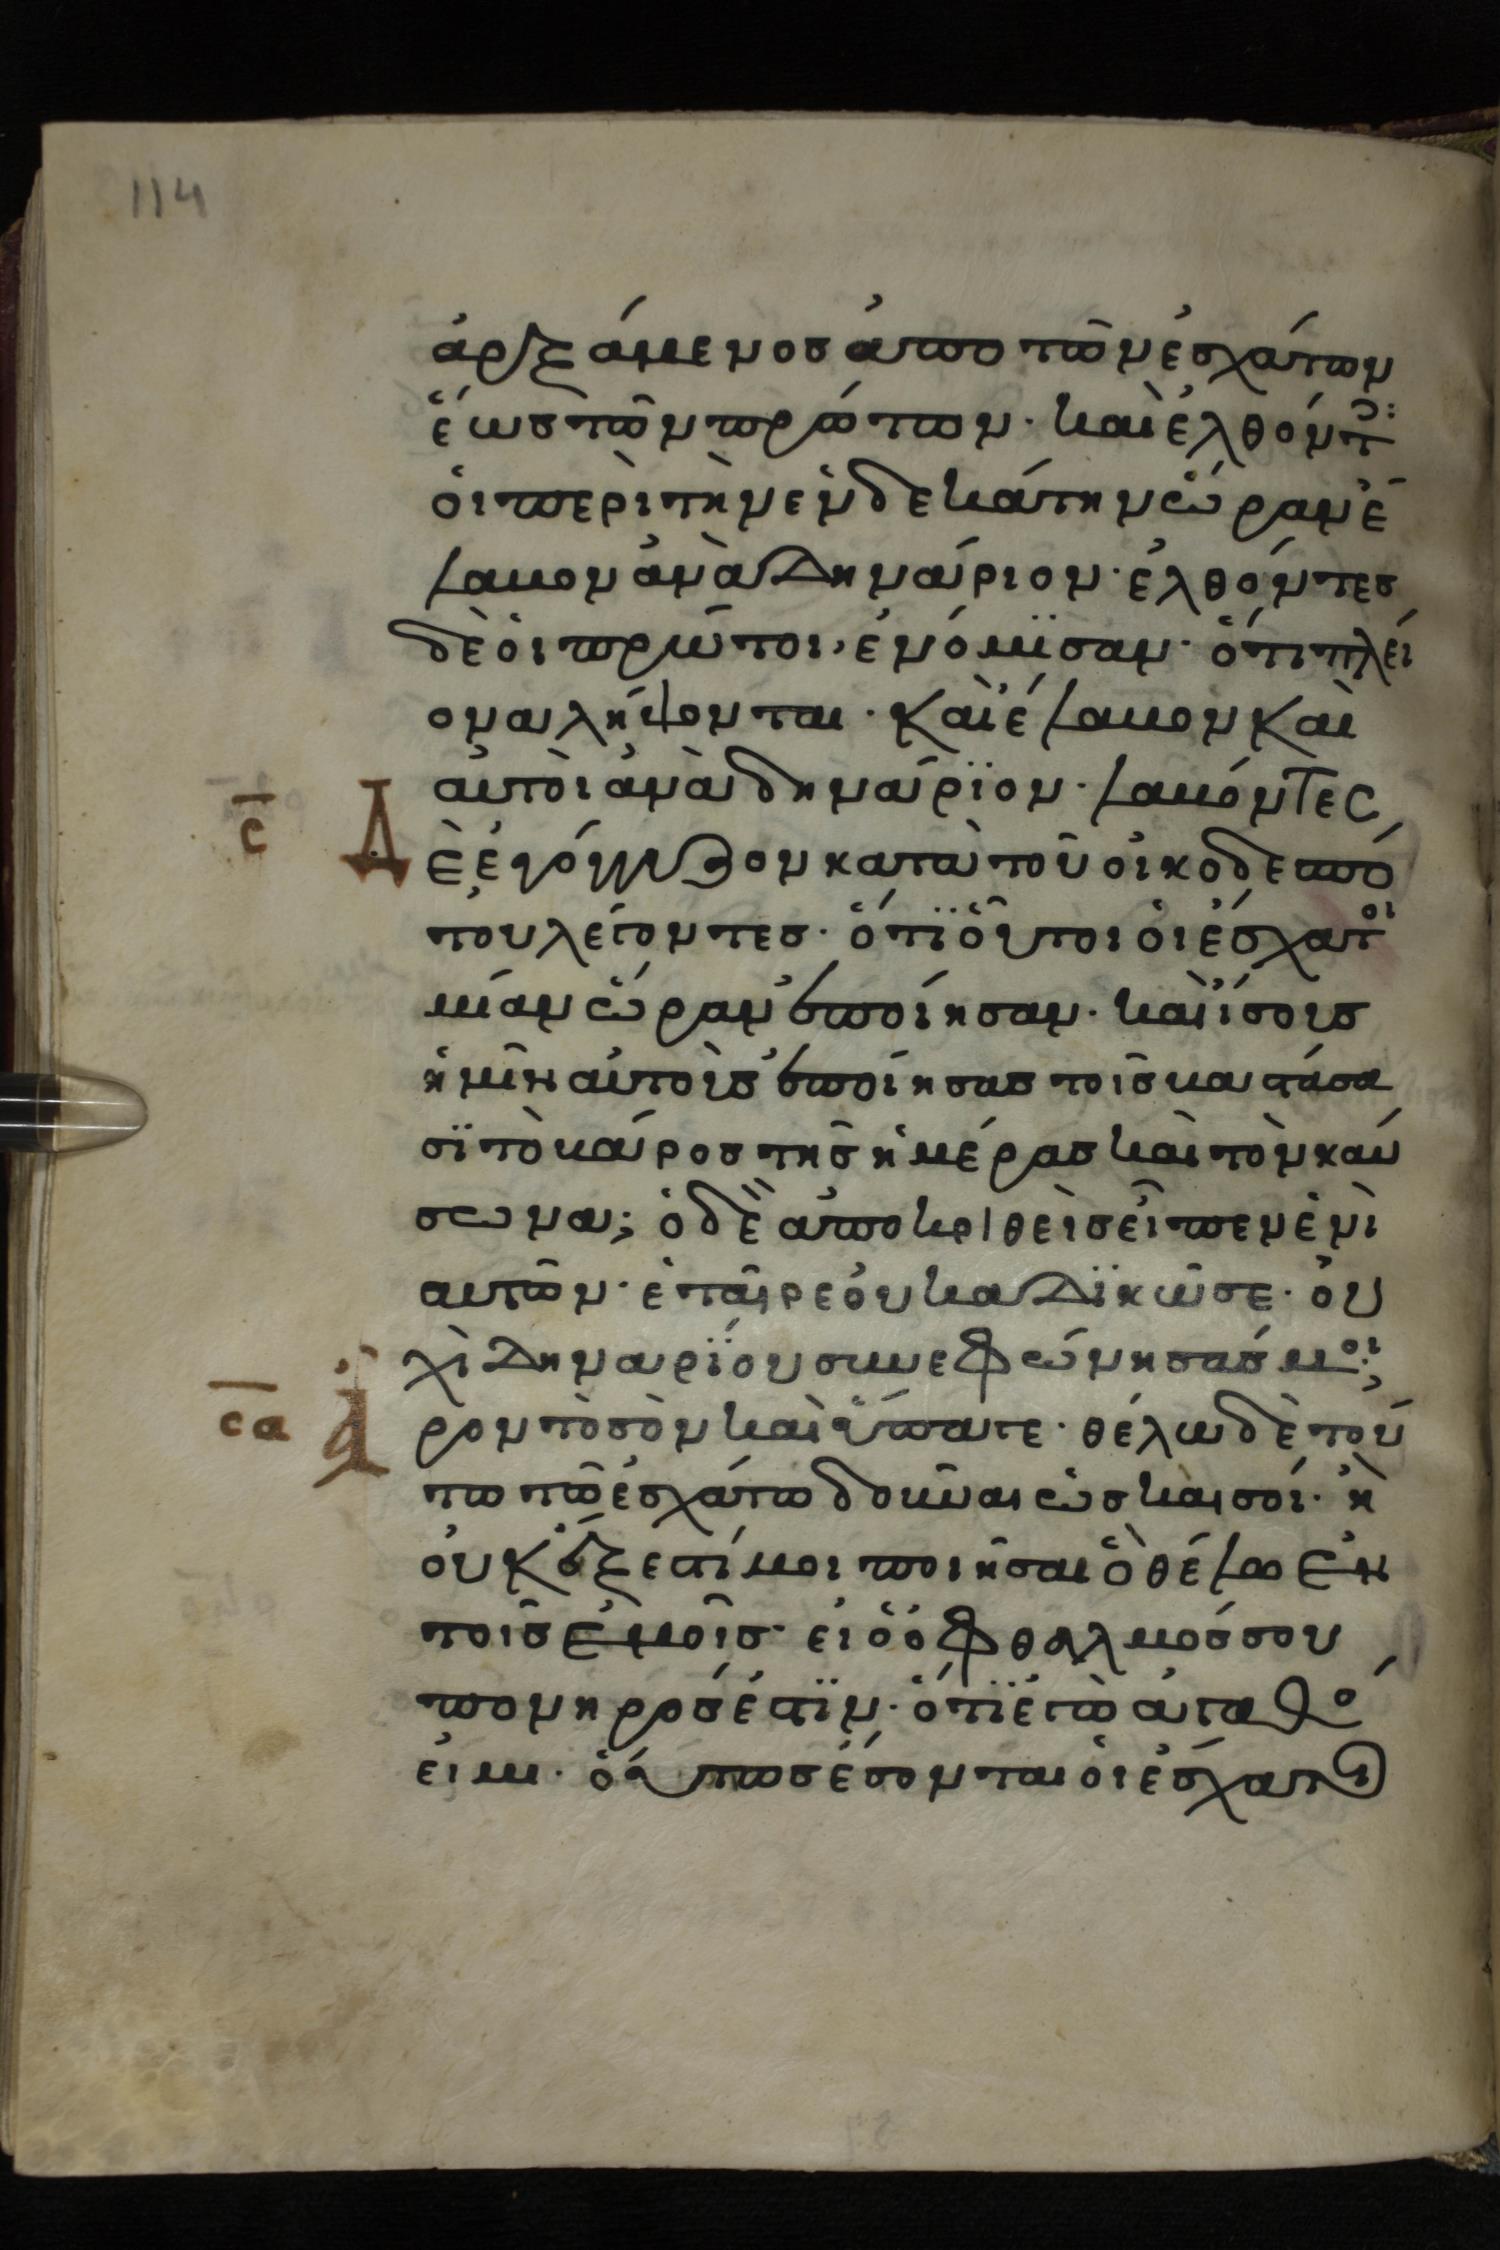 114
ἀρξάμενος ἀπο τῶν ἐσχάτων
ἕως τῶν πρώτων · καὶ ἐλθόντ(ες):
ὁι περὶ τὴν ἑνδεκάτην ὥραν ἔ
λαμον ἀνὰ δηνάριον · ἐλθόντες
δὲ ὁι πρῶτοι, ἐνόμϊσαν · ὅτι πλεί
ονα λήψονται · καὶ ἔλαμον καὶ
αὐτοὶ ἀνὰ δηνάρϊον · λαμόντες
σ Δ
ὲ ἐγόγγυζον κατὰ τοῦ οἰκοδεσπό
του λέγοντες · ὅτϊ οὗτοι ὁι ἔσχατοι
μίαν ὥραν ἐποίησαν · καὶ ἴσους
ἡμῖν αὐτοὺς ἐποίησας τοῖς καστάσα
σϊ τὸ κάρος τῆς ἡμέρας καὶ τὸν καύ
σωνα; ὁ δὲ ἀποκριθεὶς εἶπεν ἑνὶ
αυτῶν · ἑταῖρε ὀυκ αδϊκῶ σε · ὀυ
χὶ δηναρΐου συνεφώνησάς μοι;
σα ἆ
ρον τὸ σὸν καὶ ὕπαγε · θέλω δὲ τού
τω τῶ ἐσχάτω δοῦναι ὡς καὶ σοί · ἢ
ὀυκ ἔξεστί μοι ποιῆσαι ὃ θέλω ἐν
τοῖς ἐμοῖς · εἰ ὁ ὀφθαλμός σου
πονηρός ἐστϊν · ὅτϊ ἐγὼ ἀγαθό(ς)
εἰμι · ὅυτως ἔσονται ὁι ἔσχατοι